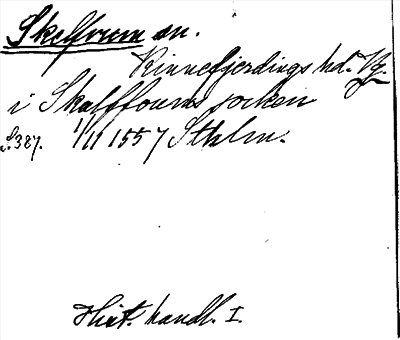 Skelfrum sn.
Kinnefjerdings hd. Vg.
i Skalffoums socken
S. 387. 1/11 1557 Sthlm.
Hist. handl. I.